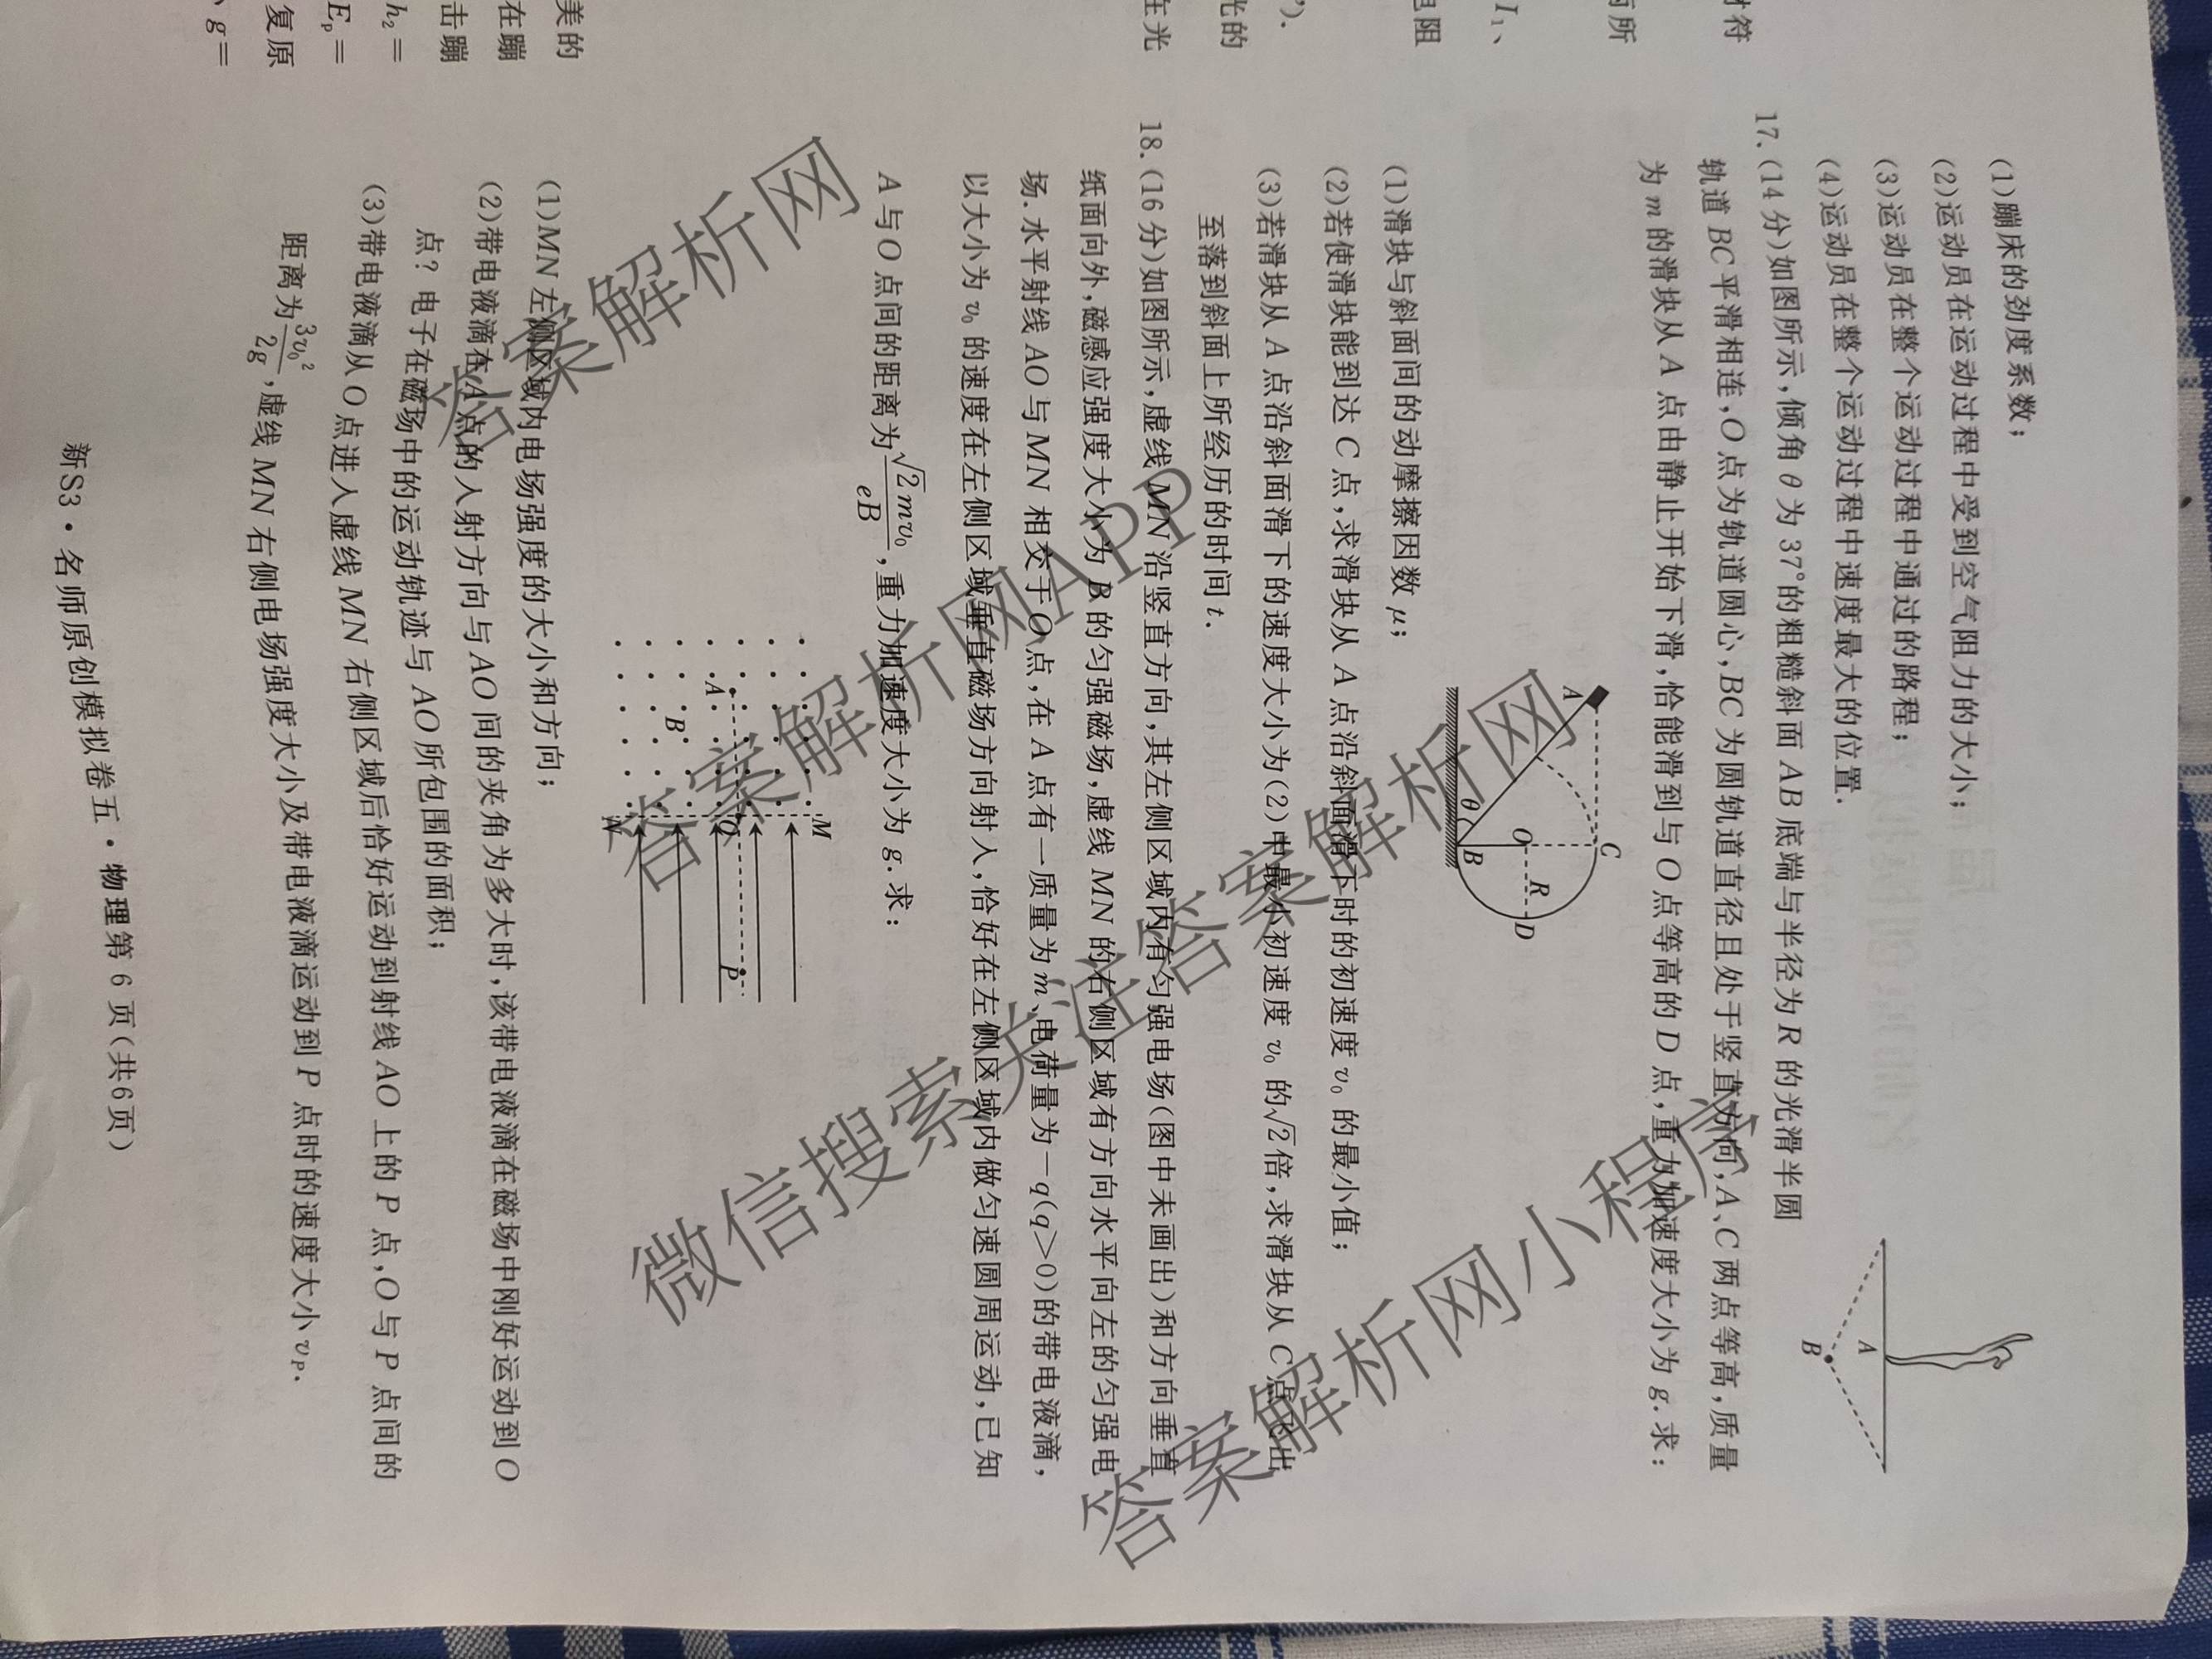 (1)蹦床的劲度系数;
(2)运动员在运动过程中受到空气阻力的大小;
(3)运动员在整个运动过程中通过的路程;
(4)运动员在整个运动过程中速度最大的位置.
A
B
17.(14分)如图所示,倾角θ为37°的粗糙斜面AB底端与半径为R的光滑半圆
轨道BC平滑相连,O点为轨道圆心,BC为圆轨道直径且处于竖直方向,A、C两点等高,质量
为m的滑块从A点由静止开始下滑,恰能滑到与O点等高的D点,重力加速度大小为g.求:
A
C
O
R
D
θ
B
(1)滑块与斜面间的动摩擦因数μ;
(2)若使滑块能到达C点,求滑块从A点沿斜面滑下时的初速度v₀的最小值;
(3)若滑块从A点沿斜面滑下的速度大小为(2)中最小初速度v₀的√2倍,求滑块从C点飞出
至落到斜面上所经历的时间t.
18.(16分)如图所示,虚线MN沿竖直方向,其左侧区域内有匀强电场(图中未画出)和方向垂直
纸面向外,磁感应强度大小为B的匀强磁场,虚线MN的右侧区域有方向水平向左的匀强电
场.水平射线AO与MN相交于O点,在A点有一质量为m、电荷量为-q(q>0)的带电液滴,
以大小为v₀的速度在左侧区域垂直磁场方向射入,恰好在左侧区域内做匀速圆周运动,已知
A与O点间的距离为√2mv₀/eB,重力加速度大小为g.求:
M
A
O
P
B
N
(1)MN左侧区域内电场强度的大小和方向;
(2)带电液滴在A点的入射方向与AO间的夹角为多大时,该带电液滴在磁场中刚好运动到O
点?电子在磁场中的运动轨迹与AO所包围的面积;
(3)带电液滴从O点进入虚线MN右侧区域后恰好运动到射线AO上的P点,O与P点间的
距离为3v₀²/2g,虚线MN右侧电场强度大小及带电液滴运动到P点时的速度大小vₚ.
新S3·名师原创模拟卷五·物理第6页(共6页)
对符
两所
I₁、
电阻
").
光的
在光
美的
在蹦
击蹦
h₂=
Eₚ=
复原
、g=
答案解析网
答案解析网APP
微信搜索关注答案解析网
答案解析网小程序